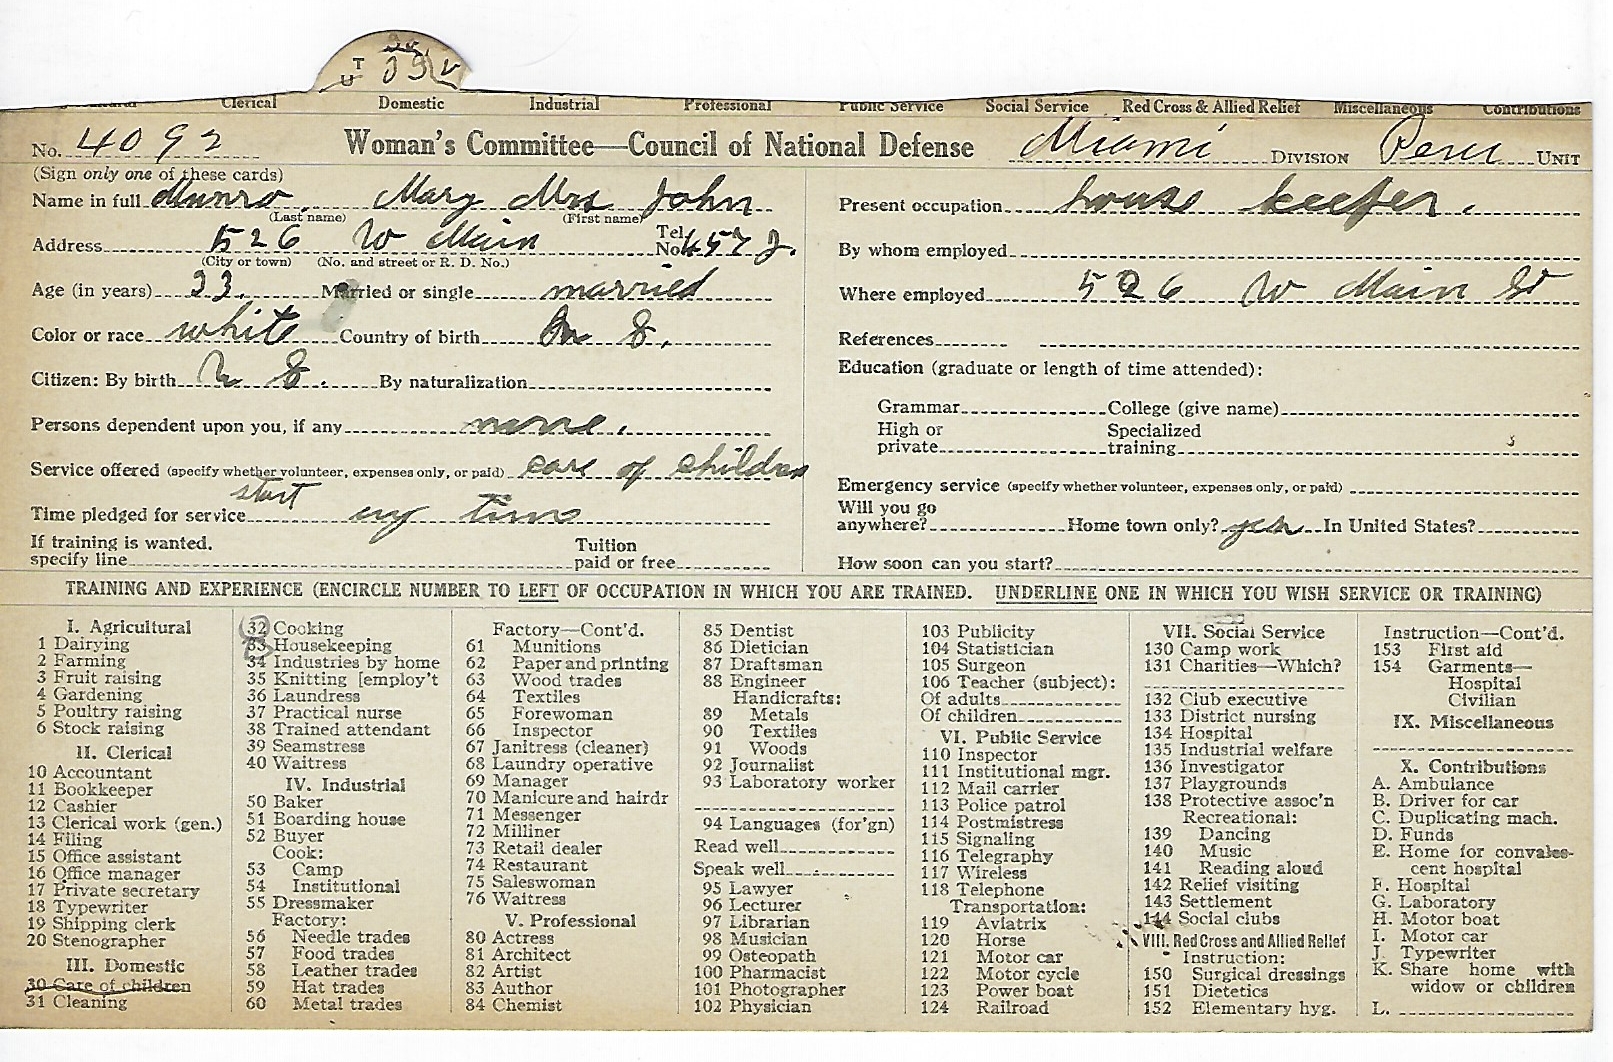 T
Clerical Domestic Industrial Professional Public Service Social Service Red Cross & Allied Relief Miscellaneous Contributions
No. 4092 Woman's Committee—Council of National Defense Miami DIVISION Peru UNIT
(Sign only one of these cards)
Name in full Munro, Mary Mrs John
(Last name) (First name)
Address 526 W Main Tel. No. 457 J.
(City or town) (No. and street or R. D. No.)
Age (in years) 33. Married or single married
Color or race white Country of birth
Citizen: By birth By naturalization
Persons dependent upon you, if any none.
Service offered (specify whether volunteer, expenses only, or paid) care of children
start
Time pledged for service any time
If training is wanted, specify line Tuition paid or free
Present occupation house keeper.
By whom employed
Where employed 526 W Main St
References
Education (graduate or length of time attended):
Grammar College (give name)
High or private Specialized training
Emergency service (specify whether volunteer, expenses only, or paid)
Will you go anywhere? Home town only? yes In United States?
How soon can you start?
TRAINING AND EXPERIENCE (ENCIRCLE NUMBER TO LEFT OF OCCUPATION IN WHICH YOU ARE TRAINED. UNDERLINE ONE IN WHICH YOU WISH SERVICE OR TRAINING)
I. Agricultural
1 Dairying
2 Farming
3 Fruit raising
4 Gardening
5 Poultry raising
6 Stock raising
II. Clerical
10 Accountant
11 Bookkeeper
12 Cashier
13 Clerical work (gen.)
14 Filing
15 Office assistant
16 Office manager
17 Private secretary
18 Typewriter
19 Shipping clerk
20 Stenographer
III. Domestic
30 Care of children
31 Cleaning
32 Cooking
33 Housekeeping
34 Industries by home
35 Knitting [employ't
36 Laundress
37 Practical nurse
38 Trained attendant
39 Seamstress
40 Waitress
IV. Industrial
50 Baker
51 Boarding house
52 Buyer
Cook:
53 Camp
54 Institutional
55 Dressmaker
Factory:
56 Needle trades
57 Food trades
58 Leather trades
59 Hat trades
60 Metal trades
Factory—Cont'd.
61 Munitions
62 Paper and printing
63 Wood trades
64 Textiles
65 Forewoman
66 Inspector
67 Janitress (cleaner)
68 Laundry operative
69 Manager
70 Manicure and hairdr
71 Messenger
72 Milliner
73 Retail dealer
74 Restaurant
75 Saleswoman
76 Waitress
V. Professional
80 Actress
81 Architect
82 Artist
83 Author
84 Chemist
85 Dentist
86 Dietician
87 Draftsman
88 Engineer
Handicrafts:
89 Metals
90 Textiles
91 Woods
92 Journalist
93 Laboratory worker
94 Languages (for'gn)
Read well
Speak well
95 Lawyer
96 Lecturer
97 Librarian
98 Musician
99 Osteopath
100 Pharmacist
101 Photographer
102 Physician
103 Publicity
104 Statistician
105 Surgeon
106 Teacher (subject):
Of adults
Of children
VI. Public Service
110 Inspector
111 Institutional mgr.
112 Mail carrier
113 Police patrol
114 Postmistress
115 Signaling
116 Telegraphy
117 Wireless
118 Telephone
Transportation:
119 Aviatrix
120 Horse
121 Motor car
122 Motor cycle
123 Power boat
124 Railroad
VII. Social Service
130 Camp work
131 Charities—Which?
132 Club executive
133 District nursing
134 Hospital
135 Industrial welfare
136 Investigator
137 Playgrounds
138 Protective assoc'n
Recreational:
139 Dancing
140 Music
141 Reading aloud
142 Relief visiting
143 Settlement
144 Social clubs
VIII. Red Cross and Allied Relief
Instruction:
150 Surgical dressings
151 Dietetics
152 Elementary hyg.
Instruction—Cont'd.
153 First aid
154 Garments—
Hospital
Civilian
IX. Miscellaneous
X. Contributions
A. Ambulance
B. Driver for car
C. Duplicating mach.
D. Funds
E. Home for convales-
cent hospital
F. Hospital
G. Laboratory
H. Motor boat
I. Motor car
J. Typewriter
K. Share home with
widow or children
L.